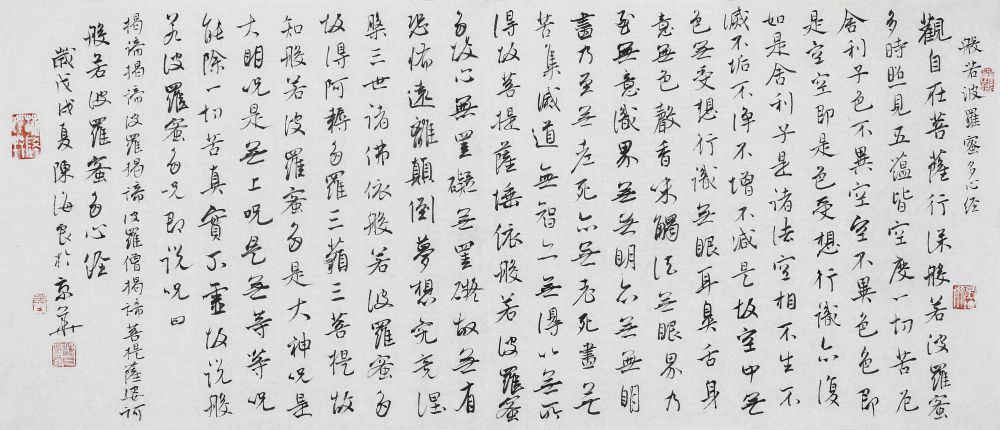 般若波羅蜜多心经
觀自在菩薩行深般若波羅蜜
多時照見五蕴皆空度一切苦厄
舍利子色不異空空不異色色即
是空空即是色受想行識亦復
如是舍利子是諸法空相不生不
滅不垢不淨不增不减是故空中无
色无受想行識无眼耳鼻舌身
意无色聲香味觸法无眼界乃
至无意識界无无明亦无無明
盡乃至无老死亦无老死盡无
苦集滅道無智亦无得以无所
得故菩提薩埵依般若波羅蜜
多故心無罣礙无罣礙故无有
恐怖遠離顛倒夢想究竟涅
槃三世諸佛依般若波羅蜜多
故得阿耨多羅三藐三菩提故
知般若波羅蜜多是大神咒是
大明咒是无上咒是无等等咒
能除一切苦真實不虛故說般
若波羅蜜多咒即說咒曰
揭諦揭諦波羅揭諦波羅僧揭諦菩提薩婆訶
般若波羅蜜多心经
歲戊戌夏陳海良於京華